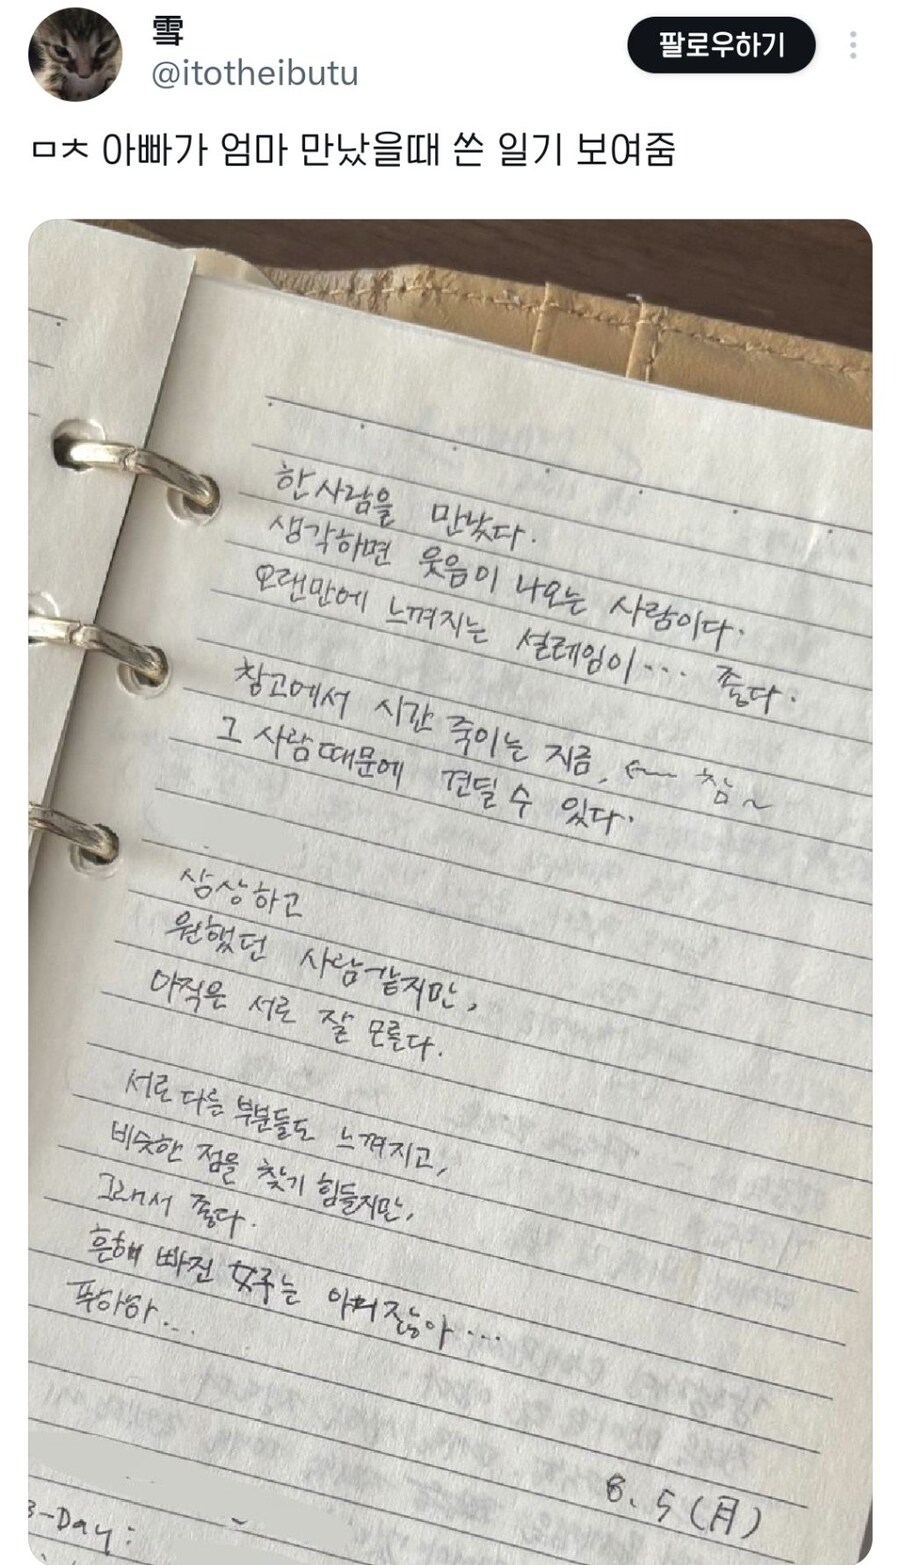 雪
@itotheibutu
팔로우하기
ㅁㅊ 아빠가 엄마 만났을때 쓴 일기 보여줌
한 사람을 만났다.
생각하면 웃음이 나오는 사람이다.
오랜만에 느껴지는 설레임이... 좋다.
창고에서 시간 죽이는 지금, ← 참~
그 사람 때문에 견딜 수 있다.
상상하고
원했던 사람같지만,
아직은 서로 잘 모른다.
서로 다른 부분들도 느껴지고,
비슷한 점을 찾기 힘들지만,
그래서 좋다.
흔해 빠진 女구는 아니잖아...
푸하하...
8. 5 (月)
-Day: